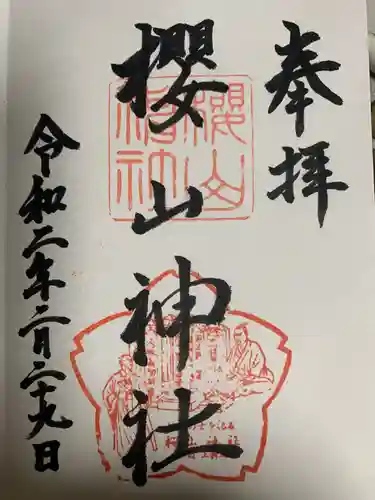 奉拝
櫻山神社
令和二年二月二十九日
櫻山神社